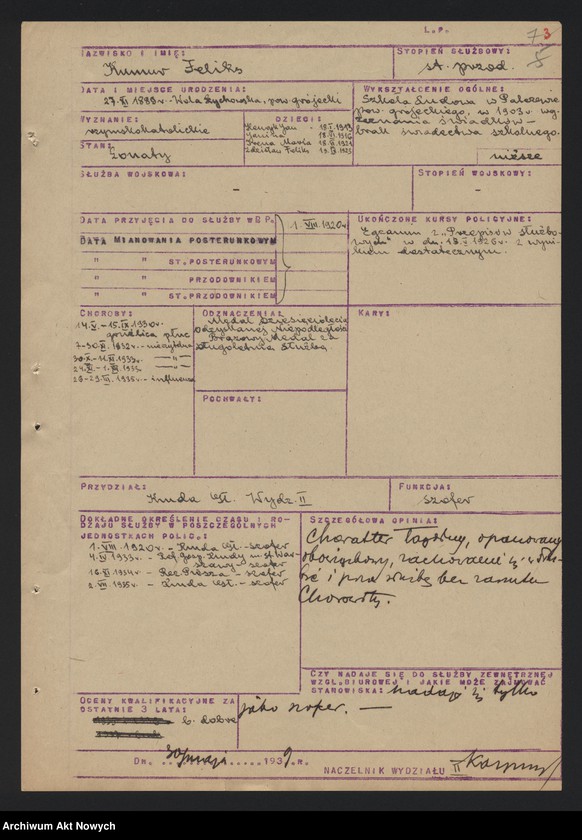 L.P.
73
5
NAZWISKO I IMIĘ:
Kumur Feliks
STOPIEŃ SŁUŻBOWY:
st. przod.
DATA I MIEJSCE URODZENIA:
27.XI 1898 r. Wola Żychowska, pow. grójecki
WYKSZTAŁCENIE OGÓLNE:
Szkoła Ludowa w Palczewie
pow. grójeckiego, w 1903 r. wg
zeznania świadków -
brak świadectwa szkolnego.
niższe
WYZNANIE:
rzymskokatolickie
DZIECI:
Henryk Jan - 19.I.1919
Janina
Irena Maria
Zdzisław Feliks
STAN:
żonaty
SŁUŻBA WOJSKOWA:
-
STOPIEŃ WOJSKOWY:
-
DATA PRZYJĘCIA DO SŁUŻBY W P.P.
1.VIII.1920 r.
DATA MIANOWANIA POSTERUNKOWYM
" " ST. POSTERUNKOWYM
" " PRZODOWNIKIEM
" " ST. PRZODOWNIKIEM
UKOŃCZONE KURSY POLICYJNE:
Egzamin z "Przepisów służbo-
wych" w dn. 18.X 1926 r. z wyni-
kiem dostatecznym.
CHOROBY:
14.V. - 15.IX.1930 r.
gruźlica płuc
7-30.XI.1932 r. - nieżyt
30.X - 1933 r. - " -
24.XI - 1935 - " -
1936 r. - influenza
ODZNACZENIA:
Medal Dziesięciolecia
Odzyskanej Niepodległości
Brązowy Medal za
długoletnią służbę
KARY:
POCHWAŁY:
PRZYDZIAŁ:
Kmda Gł. Wydz. II
FUNKCJA:
szofer
DOKŁADNE OKREŚLENIE CZASU I RO-
DZAJU SŁUŻBY W POSZCZEGÓLNYCH
JEDNOSTKACH POLIC.:
1.VIII.1920 r. - Kmda Gł. - szofer
4.IV 1933 r. - Ref. Gosp. Kmdy m. st. War-
szawy - szofer
16.XI 1934 r. - Rez. Piesza - szofer
2.VII.1935 r. - Kmda Gł. - szofer
SZCZEGÓŁOWA OPINIA:
Charakter łagodny, opanowany
obowiązkowy, zachowanie się w służ-
bie i poza służbą bez zarzutu
CZY NADAJE SIĘ DO SŁUŻBY ZEWNĘTRZNEJ
WZGL. BIUROWEJ I JAKIE MOŻE ZAJMOWAĆ
STANOWISKA: nadaje się tylko
jako szofer. —
OCENY KWALIFIKACYJNE ZA
OSTATNIE 3 LATA:
b. dobre
DN. 30 maja 1939 R.
NACZELNIK WYDZIAŁU II
Archiwum Akt Nowych